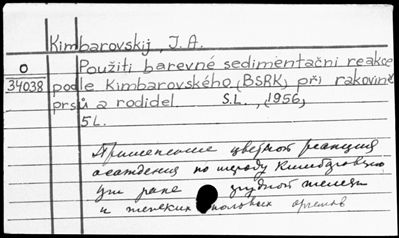 Kimbarovskij, J. A.
O
34038
Použiti barevné sedimentační reakce
podle Kimbarovského (BSRK) při rakovině
prsů a rodidel S.L., (1956,
5L.
Применение цветной реакции
осаждения по методу Кимбаровского
при раке грудной железы
и женских половых органов